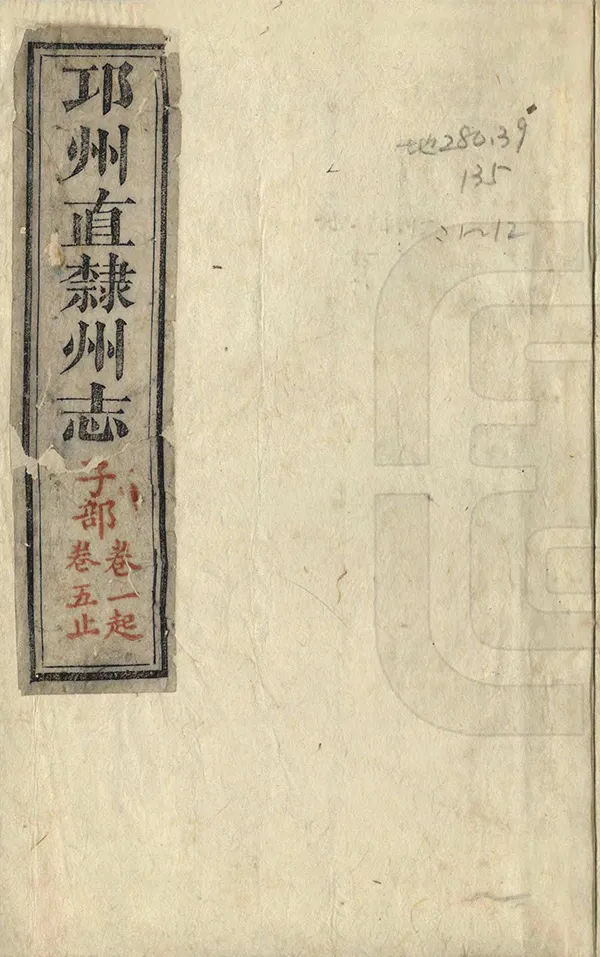 邛州直隸州志
子部
卷一起
卷五止
地280.39
135
:1~12